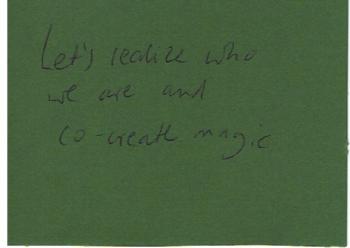 Let's realize who
we are and
co-create magic